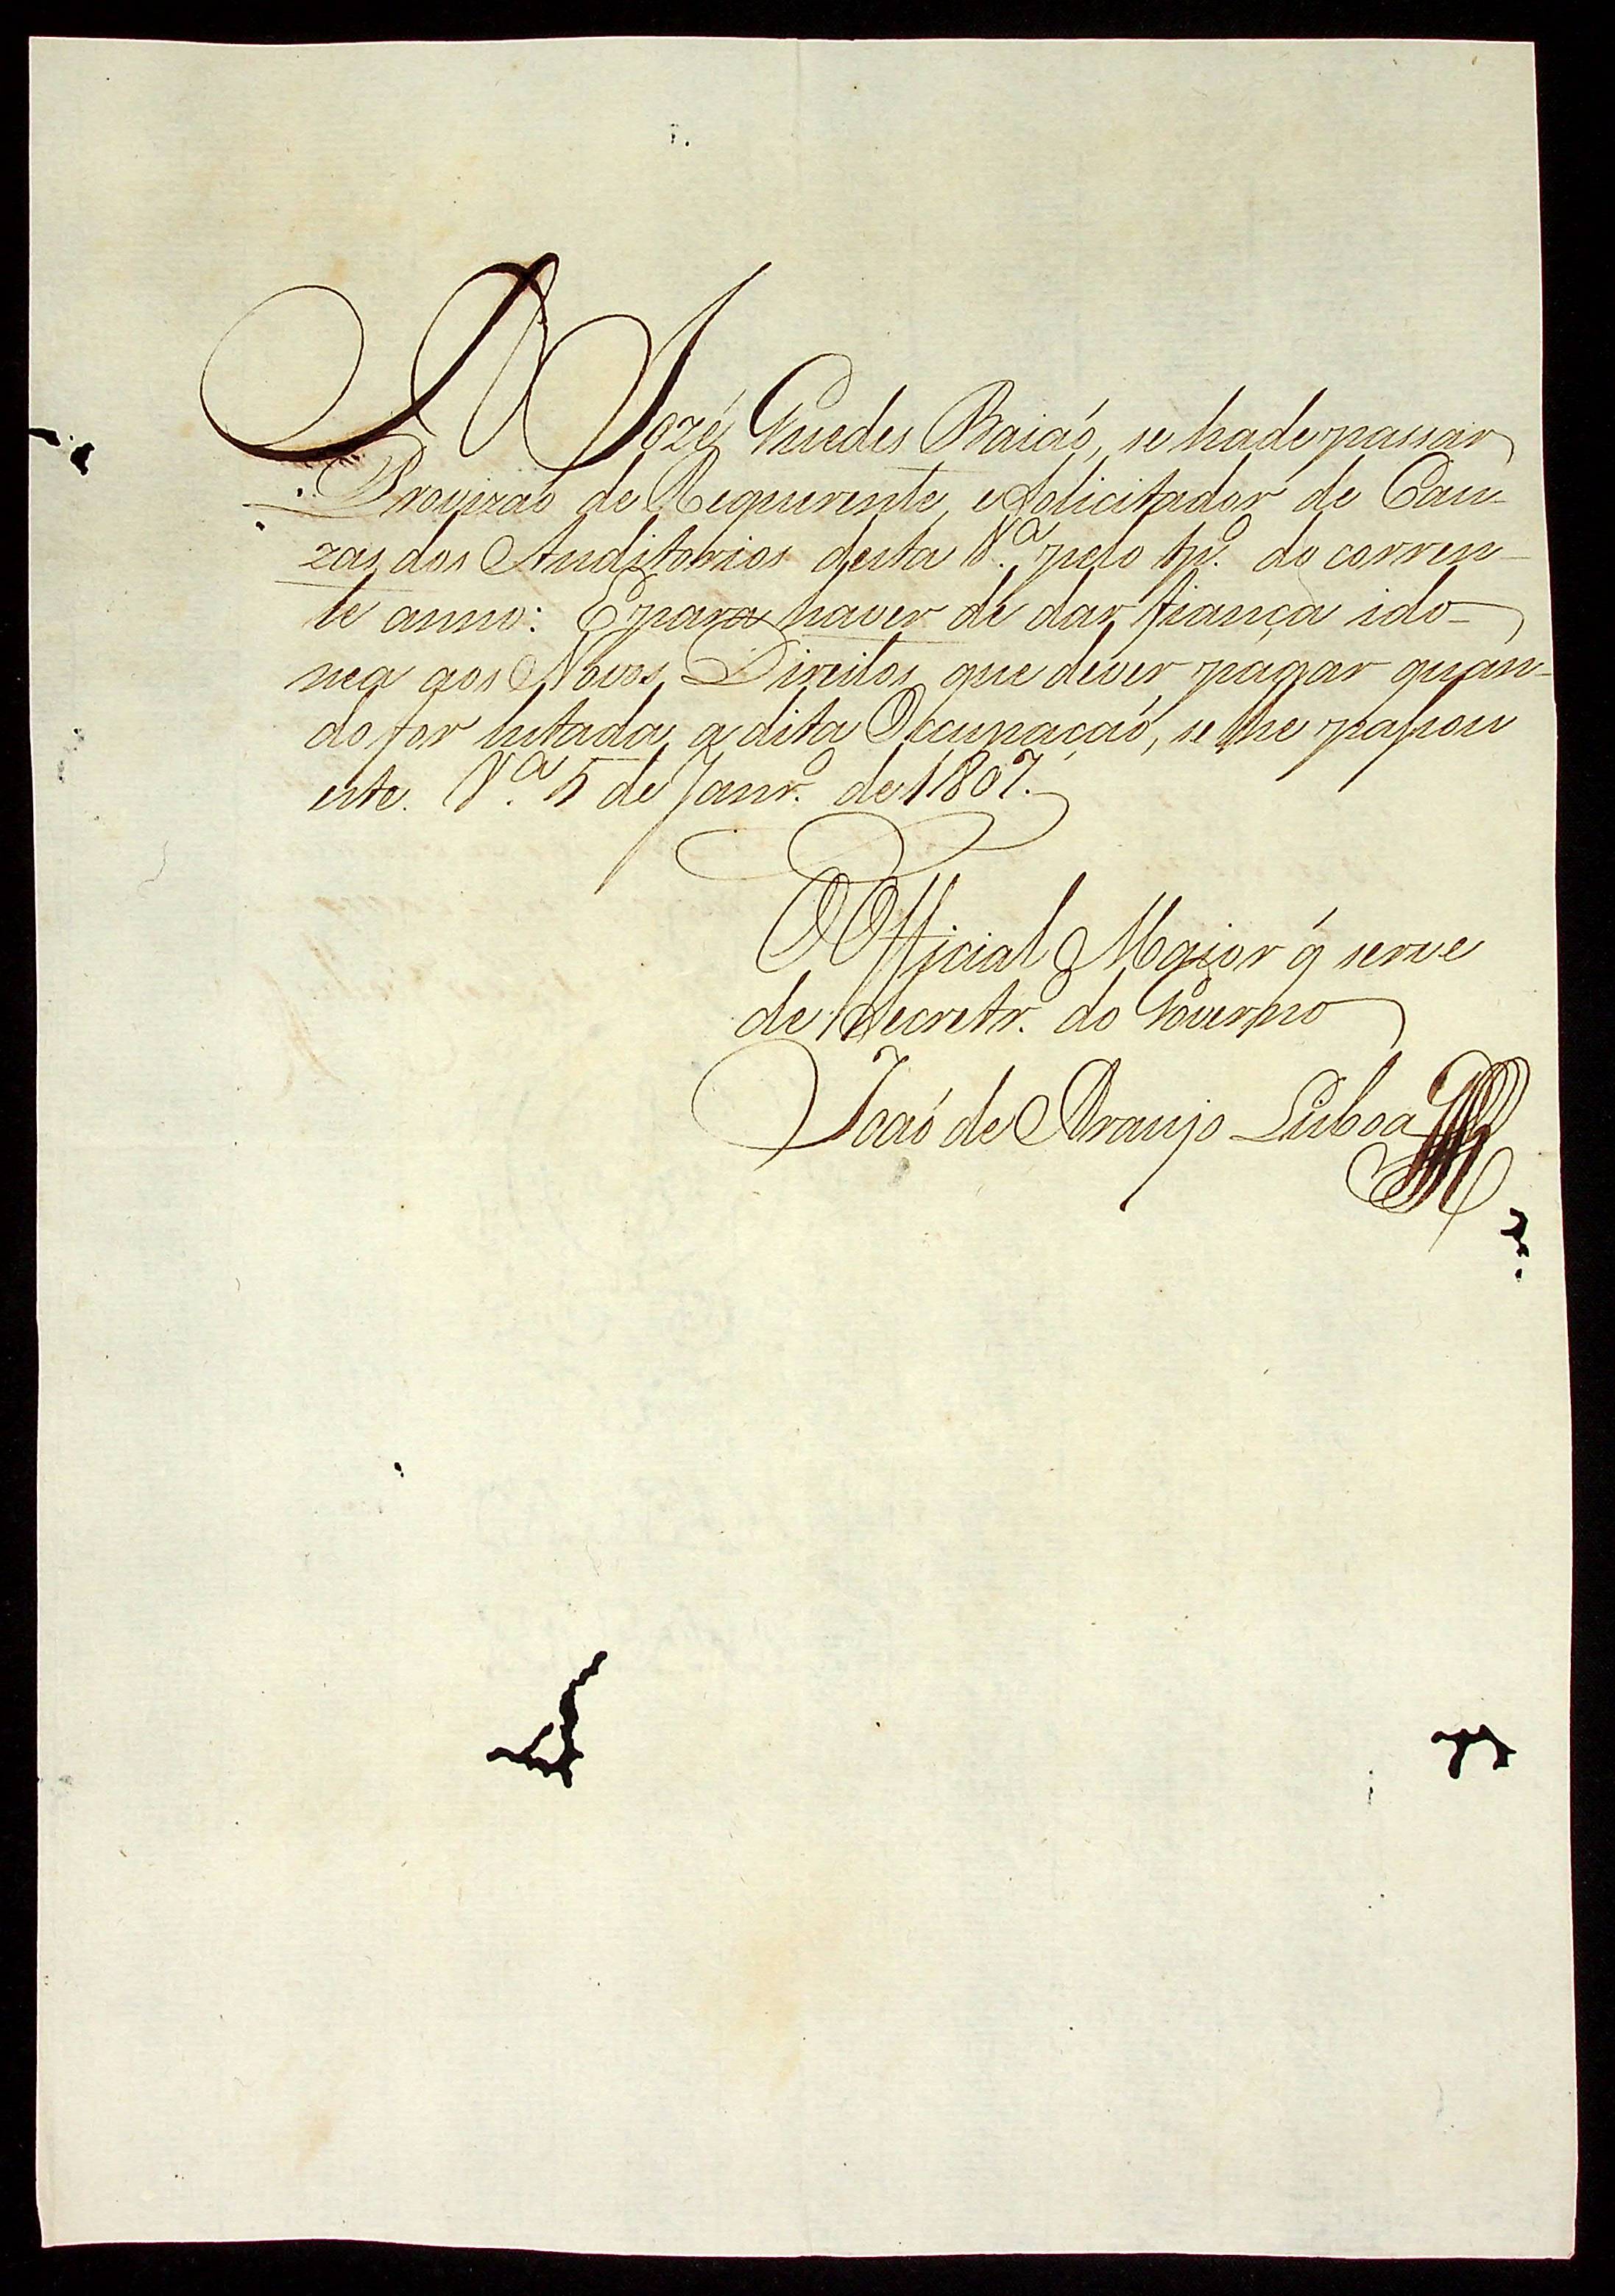 A Jozé Guedes Baiaó, se hade passar
Provizaó de Requerente, e Solicitador de Cau-
zas dos Auditorios desta V.ª pelo tp.º do corren-
te anno: E para haver de dar fiança ido-
nea aos Novos Direitos que dever pagar quan-
do for lutada a dita Occupaçaó, se lhe passou
este. V.ª 5 de Janr.º de 1807.
O Official Maior q̃ serve
de Secretr.º do Governo
Joaó de Araujo Lisboa